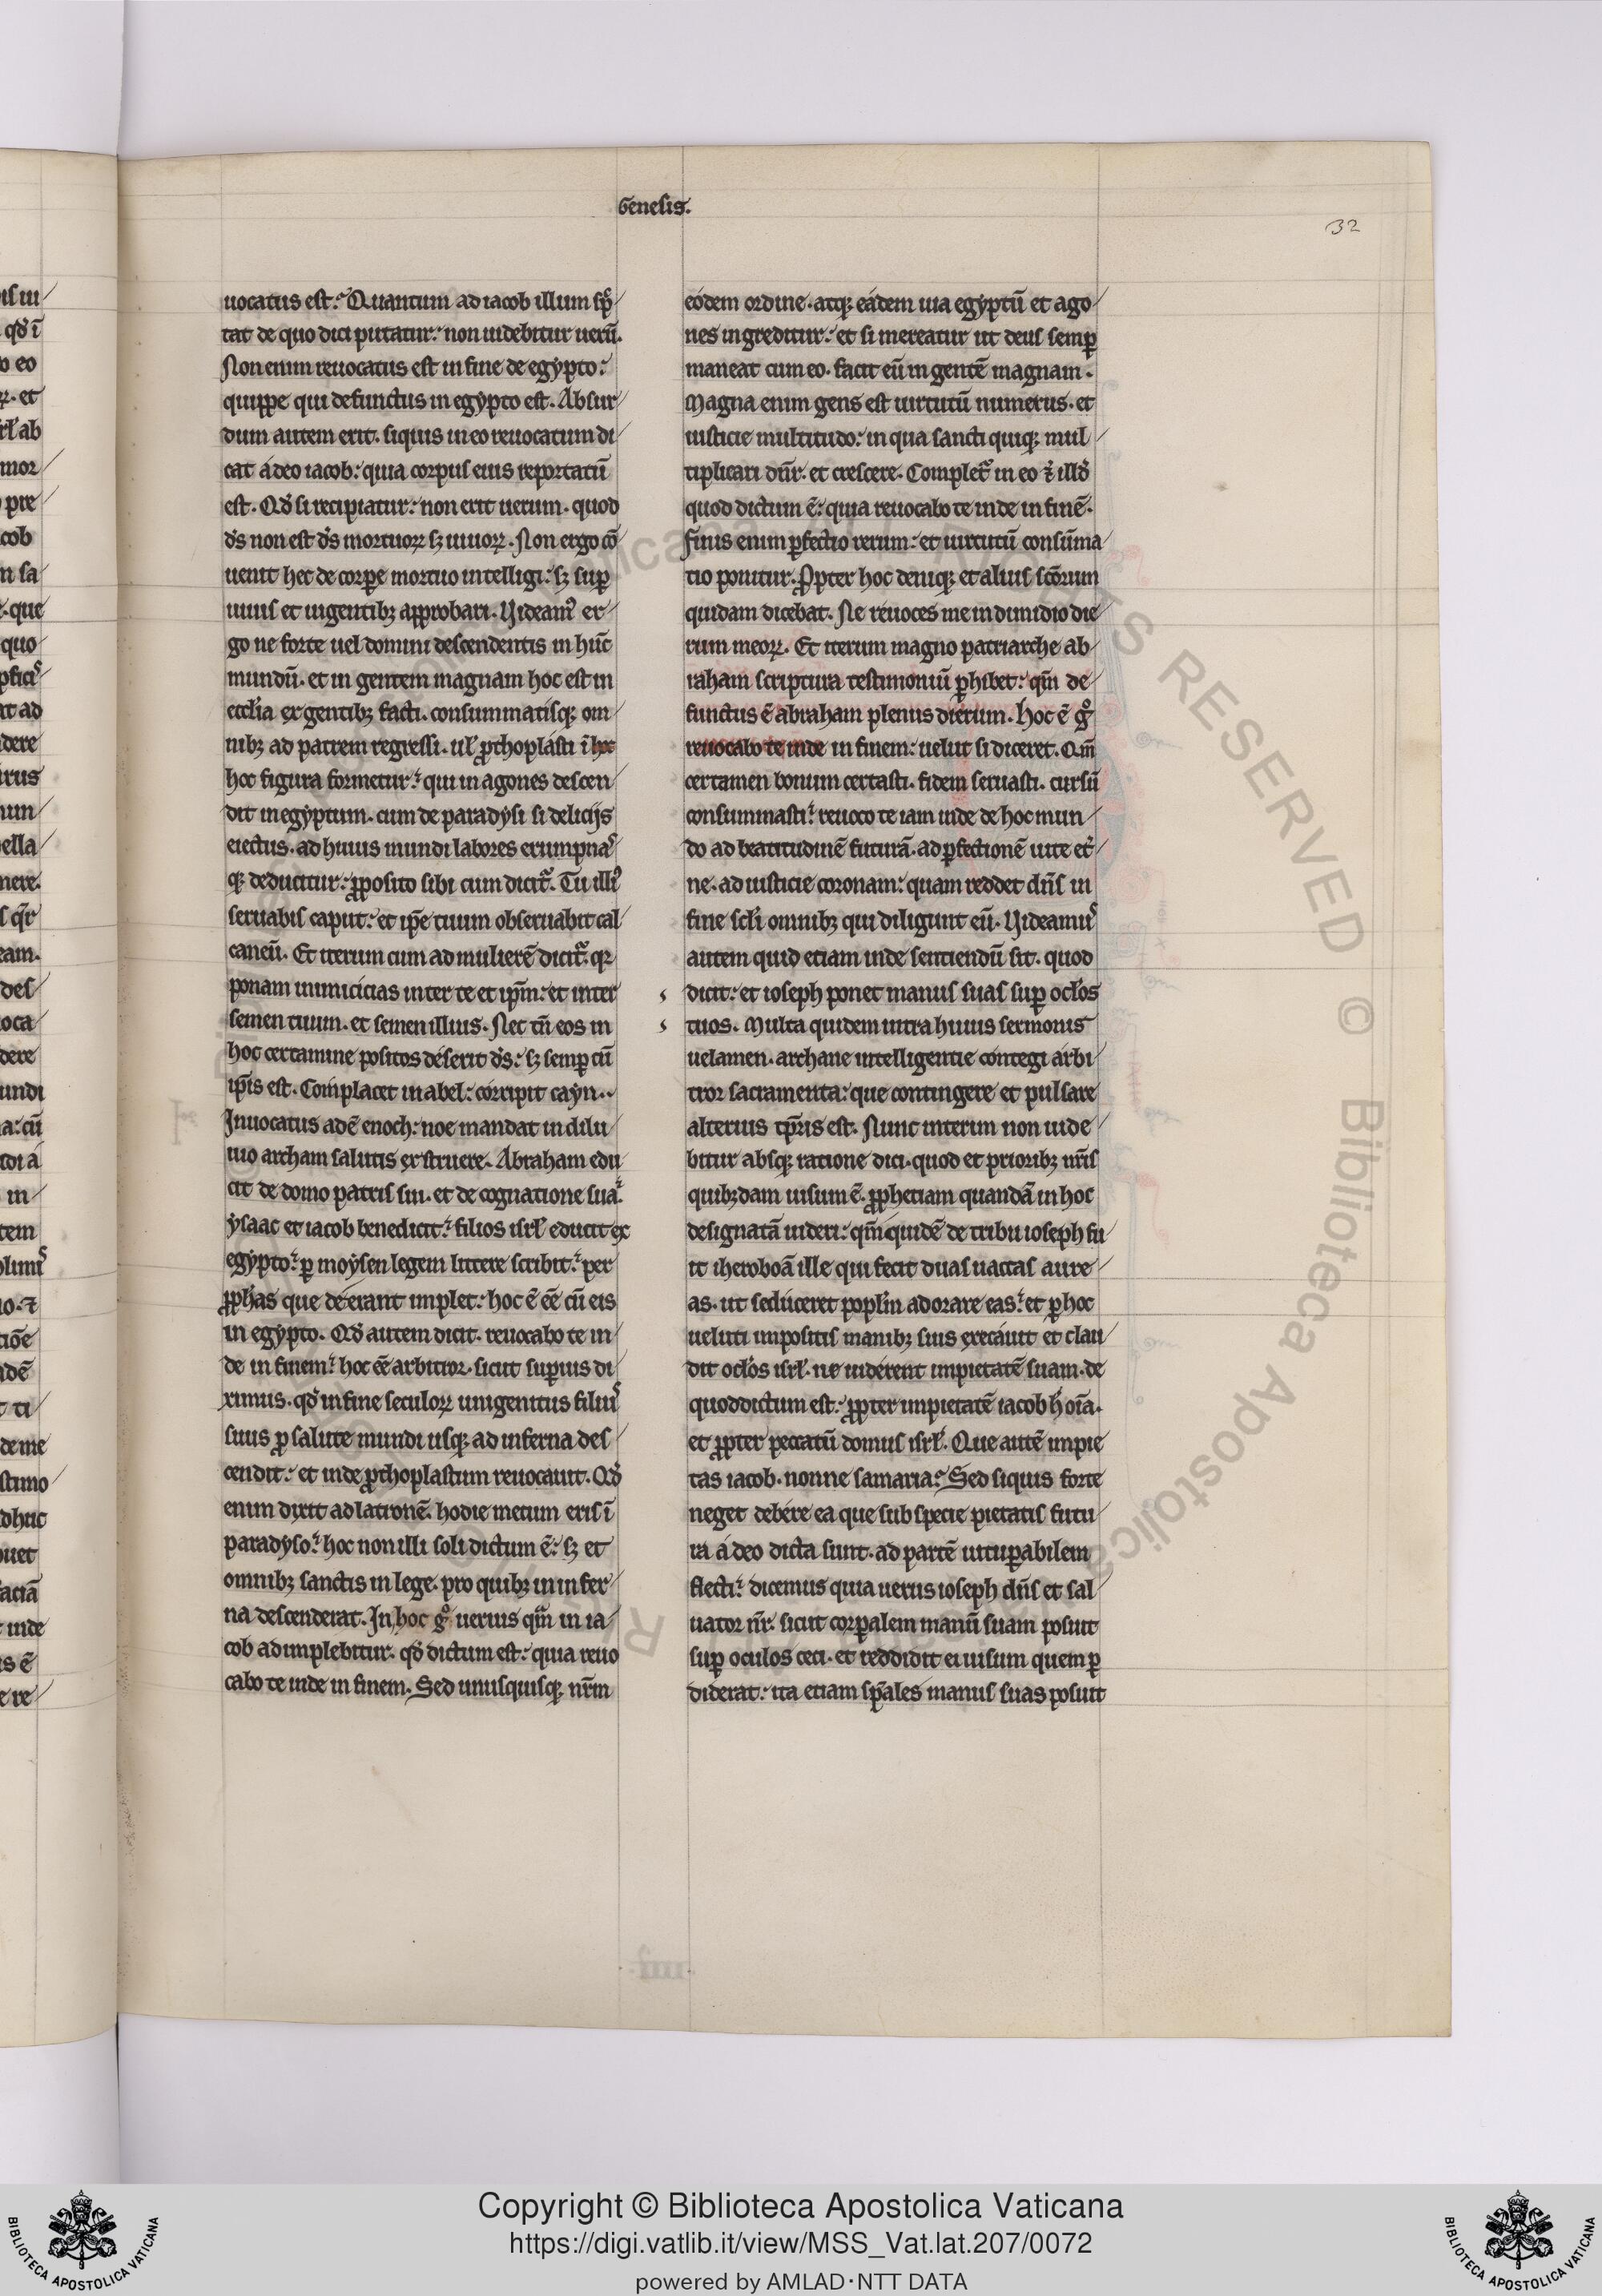 Genesis.
32
uocatus est.᾽ Quantum ad iacob illum sp̄
tat de quo dici putatur.᾽ non uidebitur uerū.
Non enim reuocatus est in fine de egypto.᾽
quippe qui defunctus in egypto est. Absur
dum autem erit. siquis in eo reuocatum di
cat a deo iacob.᾽ quia corpus eius reportatū
est. Qđ si recipiatur.᾽ non erit uerum. quod
ds̄ non est ds̄ mortuoꝝ sꝫ uiuoꝝ. Non ergo cō
uenit hec de corꝑe mortuo intelligi.᾽ sꝫ suꝑ
uiuis et uigentibꝫ aꝓprobari. Videamꝰ er
go ne forte uel domini descendentis in hūc
mundū. et in gentem magnam hoc est in
eccl̄ia ex gentibꝫ facti. consummatisqꝫ om
nibꝫ ad patrem regressi. ul̄ ꝓthoplasti ī hoc
hoc figura formetur.᾽ qui in agones descen
dit in egyptum. cum de paradysi si delicijs
eiectus. ad huius mundi labores erumpnas
qꝫ deducitur.᾽ ꝓposito sibi cum dicit᷑. Tu illiꝰ
seruabis caput.᾽ et ip̄e tuum obseruabit cal
caneū. Et iterum cum ad mulierē dicit᷑. qꝛ
ponam inimicicias inter te et ip̄m.᾽ et inter
semen tuum. et semen illius. Nec tn̄ eos in
hoc certamine positos deserit ds̄.᾽ sꝫ semꝑ cū
ip̄is est. Complacet in abel.᾽ corripit cayn..
Inuocatus adē enoch.᾽ noe mandat in dilu
uio archam salutis exstruere. Abraham edu
cit de domo patris sui. et de cognatione sua.᾽
ysaac et iacob benedicit.᾽ filios isrl̄ educit ex
egypto.᾽ ꝑ moysen legem littere scribit.᾽ per
ꝓphas que deerant implet.᾽ hoc ē eē cū eis
in egypto. Qđ autem dicit. reuocabo te in
de in finem.᾽ hoc eē arbitror. sicut suꝑius di
ximus. qđ in fine seculoꝝ unigenitus filius
suus ꝓ salute mundi usqꝫ ad inferna des
cendit.᾽ et inde ꝓthoplastum reuocauit. Qđ
enim dixit ad latronē. hodie mecum eris ī
paradyso.᾽ hoc non illi soli dictum ē.᾽ sꝫ et
omnibꝫ sanctis intellege. pro quibꝫ in infer
na descenderat. In hoc gͦ uerius qm̄ in ia
cob adimplebitur. qđ dictum est.᾽ quia reuo
cabo te inde in finem. Sed unusquisqꝫ nr̄m
eodem ordine. atqꝫ eadem uia egyptū et ago
nes ingreditur.᾽ et si mereatur ut deus semꝑ
maneat cum eo. facit eū in gentē magnam.
Magna enim gens est uirtutū numerus. et
iusticie multitudo.᾽ in qua sancti quiqꝫ mul
tiplicari dn̄r. et crescere. Complet᷑ in eo ⁊ illđ
quod dictum ē.᾽ quia reuocabo te inde in finē.
Finis enim ꝑfectio rerum.᾽ et uirtutū consūma
tio ponitur. Ꝓpter hoc deniqꝫ et alius sc̄orum
quidam dicebat. Ne reuoces me in dimidio die
rum meoꝝ. Et iterum magno patriarche ab
raham scriptura testimoniū ꝑhibet.᾽ qm̄ de
functus ē abraham plenus dierum. hoc ē gͦ
reuocabo te inde in finem.᾽ uelut si diceret. Qm̄
certamen bonum certasti. fidem seruasti. cursū
consummasti.᾽ reuoco te iam inde de hoc mun
do ad beatitudinē futurā. ad ꝑfectionē uite et̄
ne. ad iusticie coronam.᾽ quam reddet dn̄s in
fine scl̄i omnibꝫ qui diligunt eū. Videamus
autem quid etiam inde sentiendū sit. quod
dicit.᾽ et ioseph ponet manus suas suꝑ ocl̄os
tuos. Multa quidem intra huius sermonis
uelamen. archane intelligentie contegi arbi
tror sacramenta.᾽ que contingere et pulsare
alterius tp̄ris est. Nunc interim non uide
bitur absqꝫ ratione dici. quod et prioribꝫ nr̄is
quibꝫdam uisum ē. ꝓphetiam quandā in hoc
designatā uideri.᾽ qm̄ quidē de tribu ioseph fu
it iheroboā ille qui fecit duas uaccas aure
as. ut seduceret popl̄m adorare eas.᾽ et ꝑ hoc
ueluti impositis manibꝫ suis execauit et clau
dit ocl̄os isrl̄. ne uiderent impietatē suam. de
quo dictum est.᾽ ꝓpter impietatē iacob h̄ oīa.
et ꝓpter peccatū domus isrl̄. Que autē impie
tas iacob. nonne samaria.᾽ Sed siquis forte
neget debere ea que sub specie pietatis futu
ra a deo dicta sunt. ad partē uituꝑabilem
flecti.᾽ dicemus quia uerus ioseph dn̄s et sal
uator nr̄. sicut corꝑalem manū suam posuit
suꝑ oculos ceci. et reddidit ei uisum quem ꝑ
diderat.᾽ ita etiam sp̄ales manus suas posuit
Copyright © Biblioteca Apostolica Vaticana
https://digi.vatlib.it/view/MSS_Vat.lat.207/0072
powered by AMLAD·NTT DATA
BIBLIOTECA APOSTOLICA VATICANA
BIBLIOTECA APOSTOLICA VATICANA